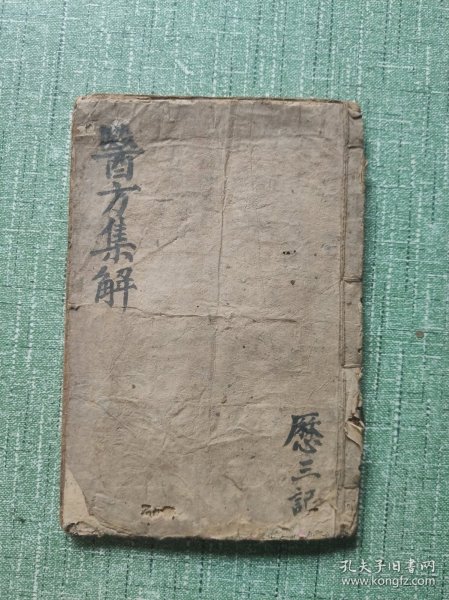 醫方集解
三記
孔夫子旧书网
www.kongfz.com